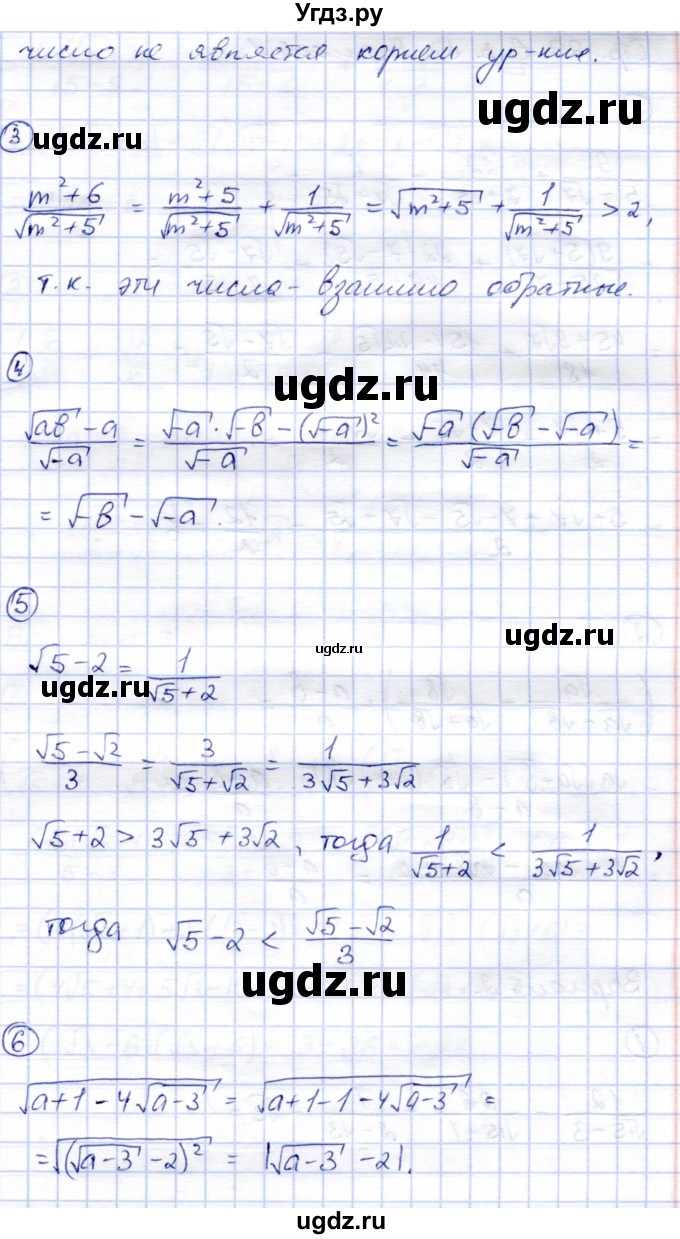 Угдз.ру
число не является корнем ур-ния.
ugdz.ru
③ ugdz.ru
(m²+6)/√(m²+5) = (m²+5)/√(m²+5) + 1/√(m²+5) = √(m²+5) + 1/√(m²+5) > 2,
т.к. эти числа - взаимно обратные.
④
ugdz.ru
(√(ab) - a)/√(-a) = (√(-a) · √(-b) - (√(-a))²)/√(-a) = (√(-a) (√(-b) - √(-a)))/√(-a) =
= √(-b) - √(-a).
ugdz.ru
⑤
ugdz.ru
√5 - 2 = 1/(√5 + 2)
ugdz.ru
(√5 - √2)/3 = 3/(√5 + √2) = 1/(3√5 + 3√2)
√5 + 2 > 3√5 + 3√2, тогда 1/(√5 + 2) < 1/(3√5 + 3√2),
тогда √5 - 2 < (√5 - √2)/3
ugdz.ru
⑥
√(a + 1 - 4√(a-3)) = √(a + 1 - 1 - 4√(a-3)) =
= √((√(a-3) - 2)²) = |√(a-3) - 2|.
ugdz.ru